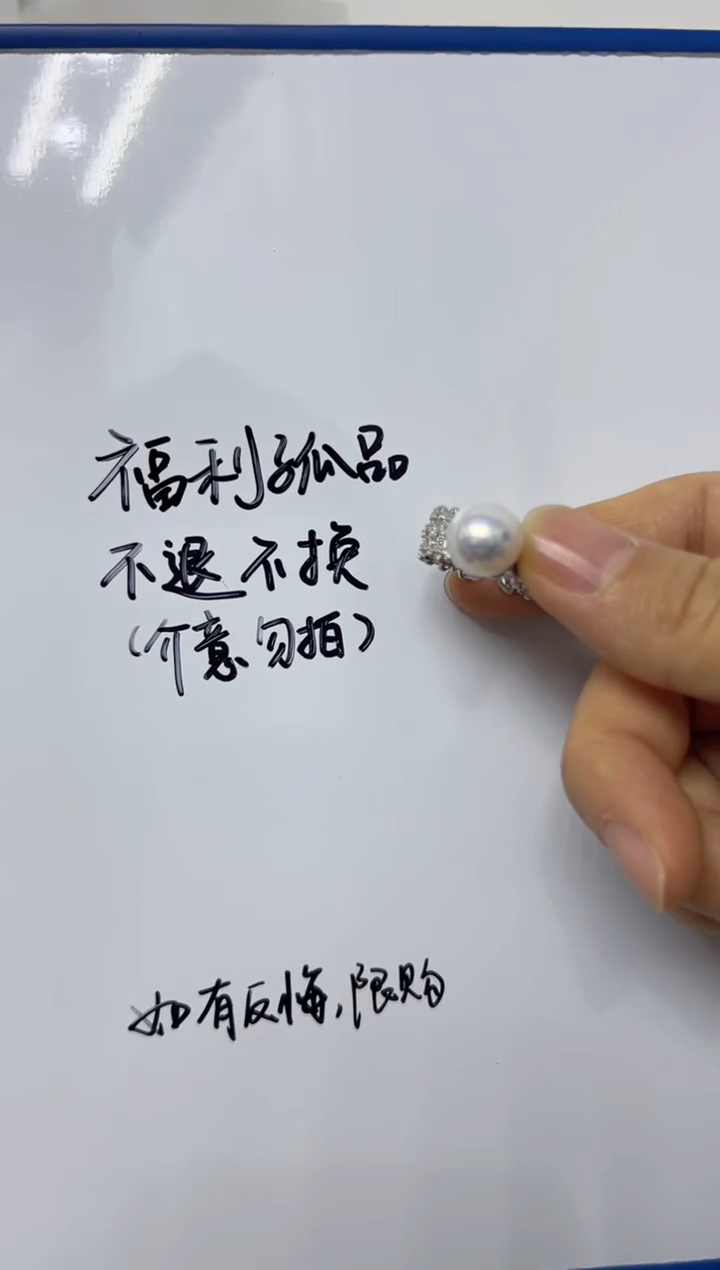 福利孤品
不退不换
(介意勿拍)
如有反悔,限购